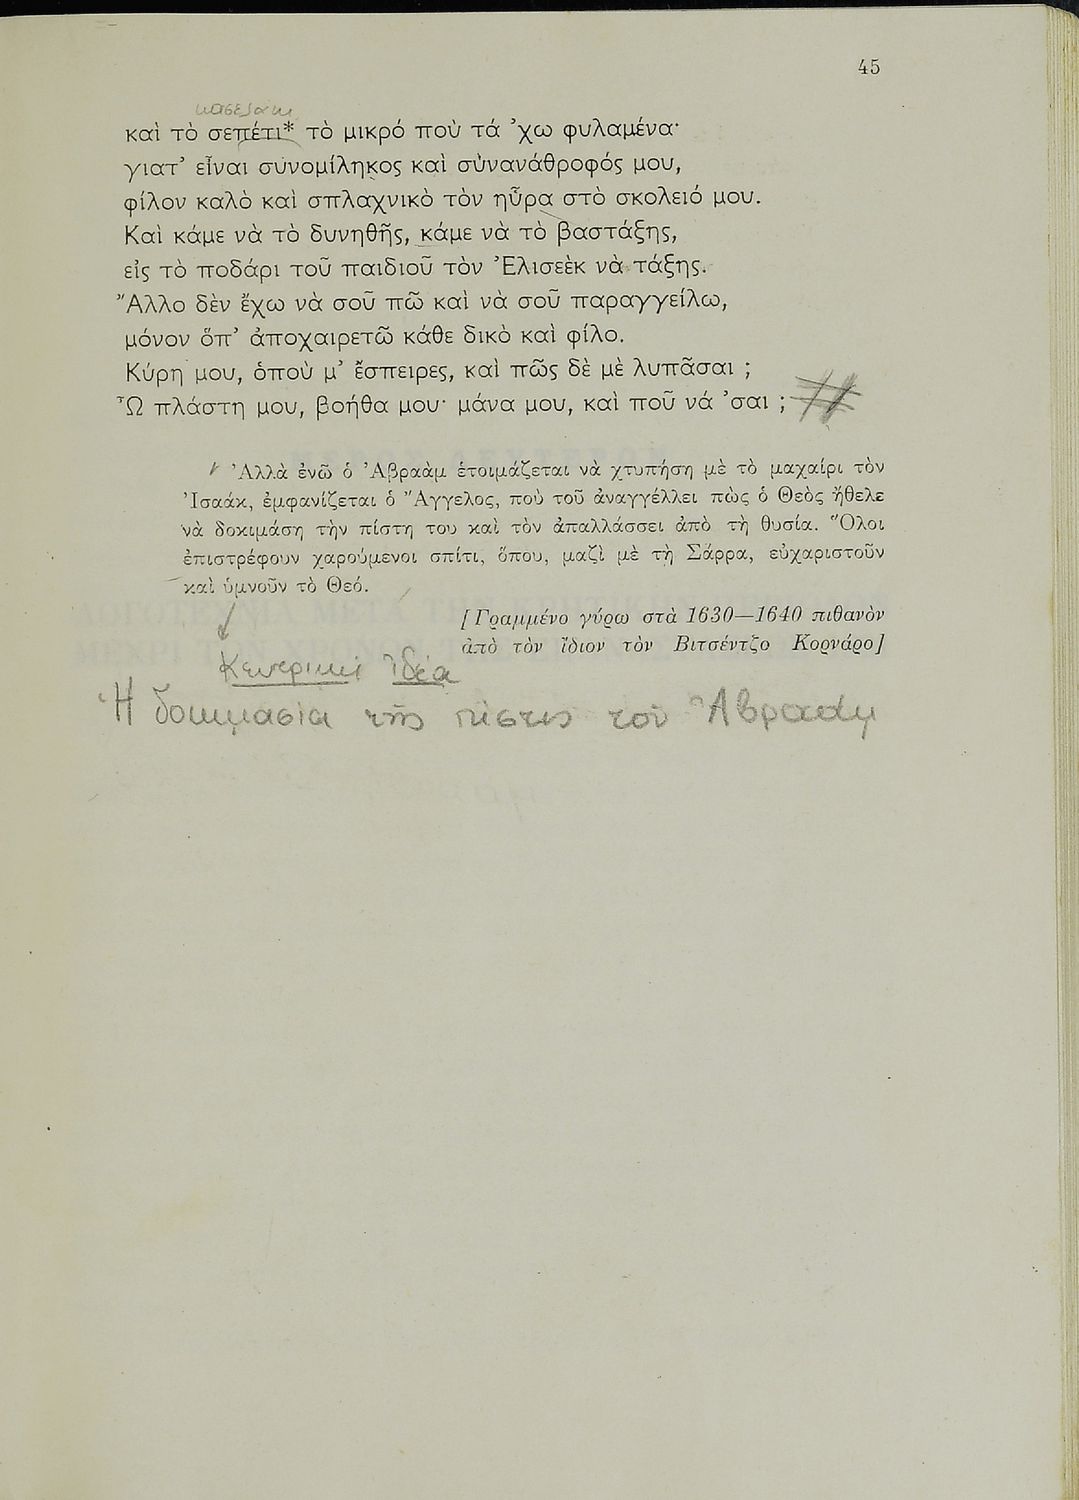 45
κασελάκι
καὶ τὸ σεπέτι* τὸ μικρό ποὺ τά ’χω φυλαμένα·
γιατ’ εἶναι συνομίληκος καὶ σὺνανάθροφός μου,
φίλον καλὸ καὶ σπλαχνικὸ τὸν ηὗρα στὸ σκολειό μου.
Καὶ κάμε νὰ τὸ δυνηθῆς, κάμε νὰ τὸ βαστάξης,
εἰς τὸ ποδάρι τοῦ παιδιοῦ τὸν Ἐλισεὲκ νὰ τάξης.
Ἄλλο δὲν ἔχω νὰ σοῦ πῶ καὶ νὰ σοῦ παραγγείλω,
μόνον ὅπ’ ἀποχαιρετῶ κάθε δικὸ καὶ φίλο.
Κύρη μου, ὁποὺ μ’ ἔσπειρες, καὶ πῶς δὲ μὲ λυπᾶσαι ;
Ὦ πλάστη μου, βοήθα μου· μάνα μου, καὶ ποῦ νά ’σαι ;
Ἀλλὰ ἐνῶ ὁ Ἀβραὰμ ἑτοιμάζεται νὰ χτυπήση μὲ τὸ μαχαίρι τὸν
Ἰσαάκ, ἐμφανίζεται ὁ Ἄγγελος, ποὺ τοῦ ἀναγγέλλει πὼς ὁ Θεὸς ἤθελε
νὰ δοκιμάση τὴν πίστη του καὶ τὸν ἀπαλλάσσει ἀπὸ τὴ θυσία. Ὅλοι
ἐπιστρέφουν χαρούμενοι σπίτι, ὅπου, μαζὶ μὲ τὴ Σάρρα, εὐχαριστοῦν
καὶ ὑμνοῦν τὸ Θεό.
[Γραμμένο γύρω στὰ 1630—1640 πιθανὸν
ἀπὸ τὸν ἴδιον τὸν Βιτσέντζο Κορνάρο]
Κεντρική ἰδέα
Ἡ δοκιμασία τῆς πίστης τοῦ Ἀβραάμ